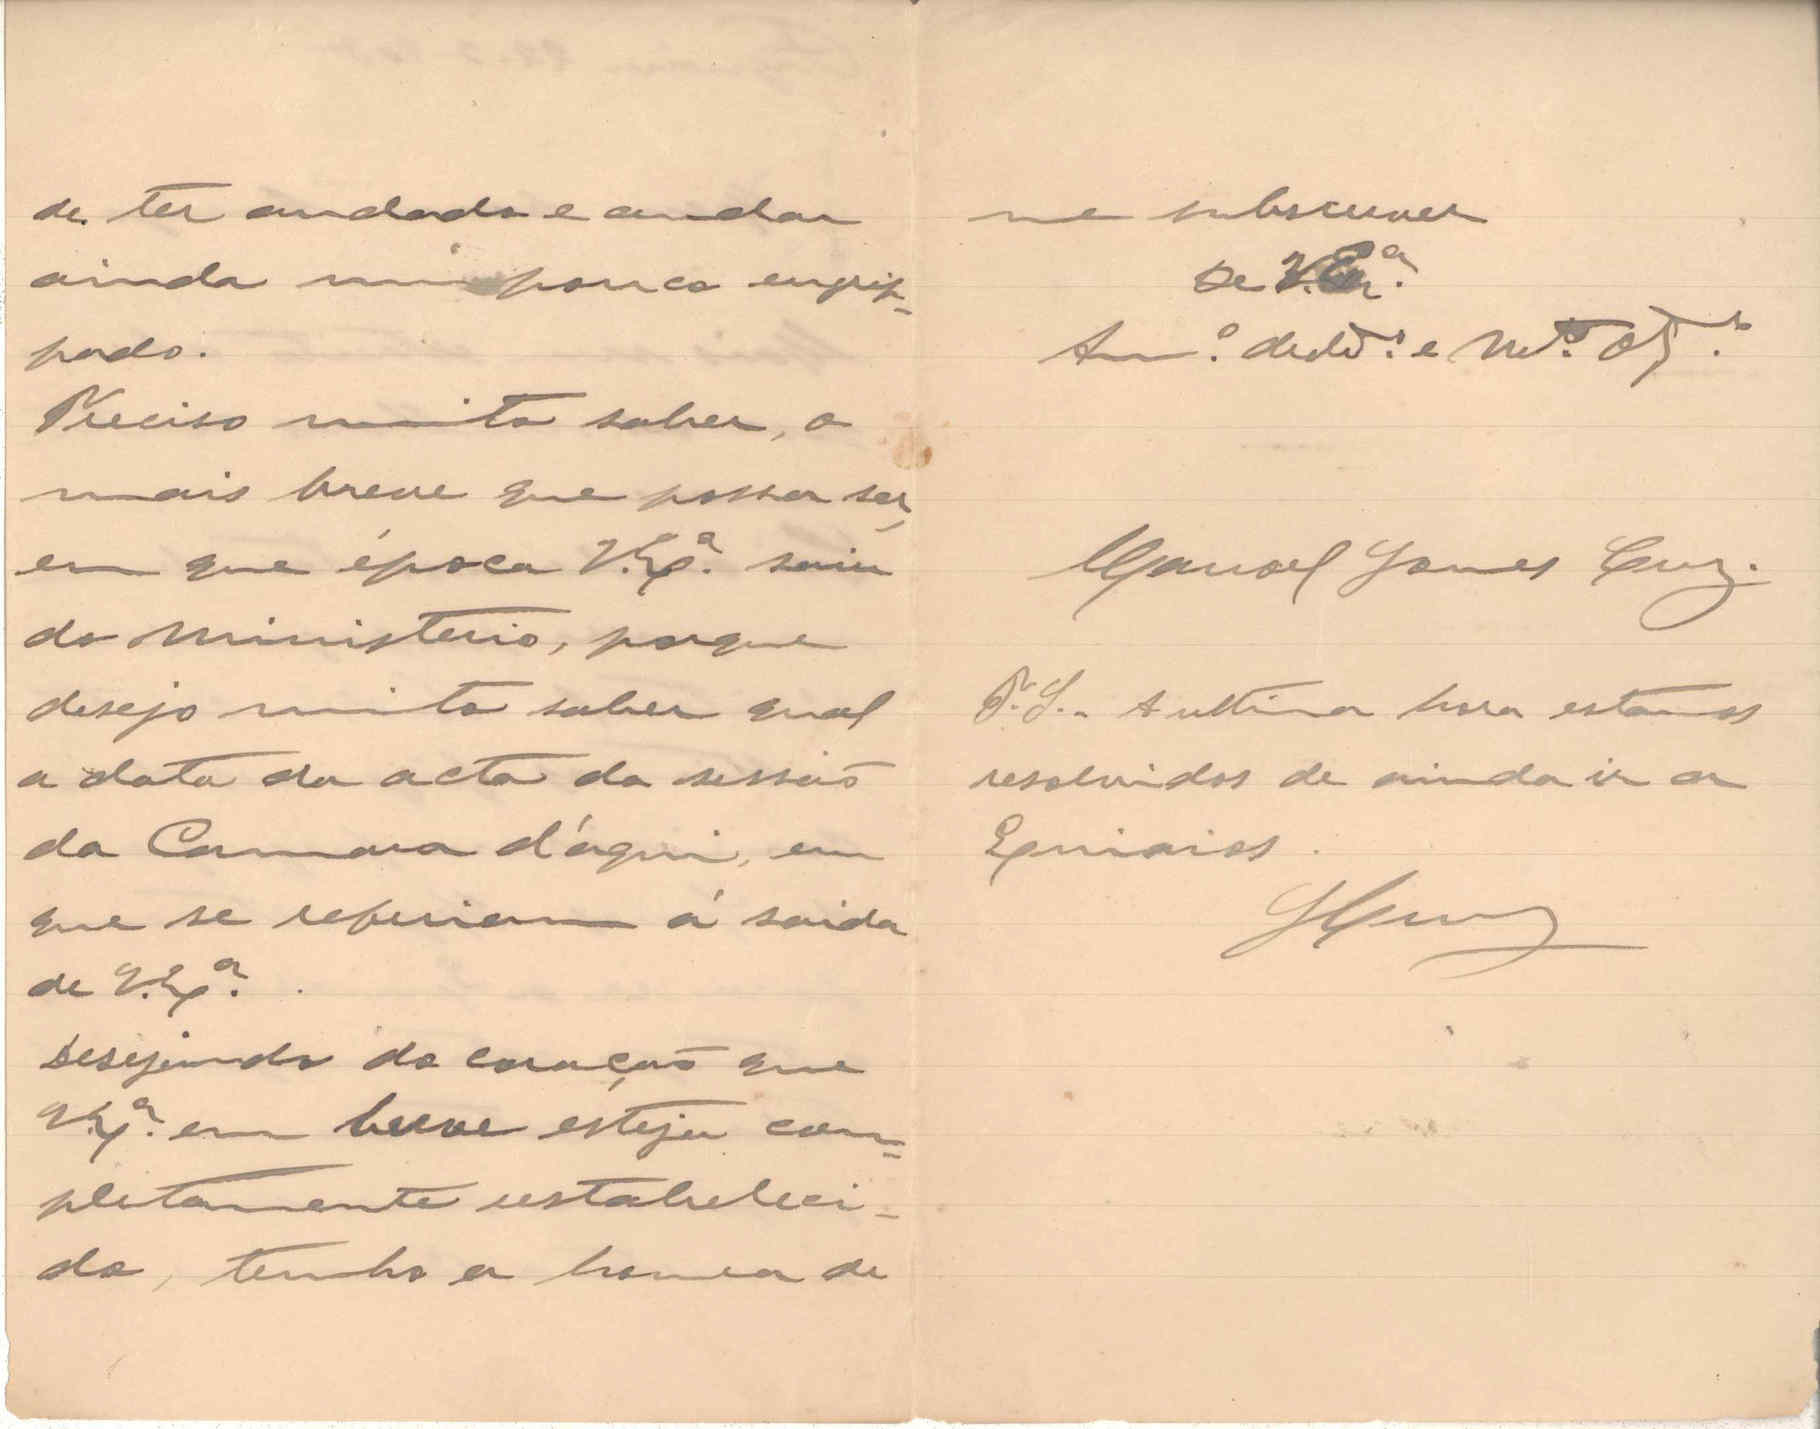 de ter andado e andar
ainda um pouco engrip-
pado.
Preciso muito saber, o
mais breve que possa ser,
em que época V. Exª. saiu
do Ministerio, porque
desejo muito saber qual
a data da acta da sessão
da Camara d'áqui, em
que se referiam á saida
de V. Exª.
Desejando do coração que
V. Exª. em breve esteja com-
pletamente restabeleci-
do, tenho a honra de
me subscrever
De V. Exª.
Amº. dedº. e Mtº. Obgº.
Manoel Gomes Cruz.
P.S.. A ultima hora estamos
resolvidos de ainda ir a
GCruz